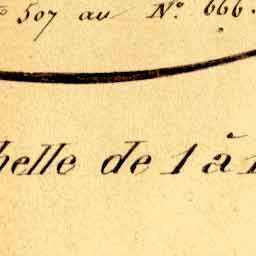 507 au N.º 666.
helle de 1 à 1